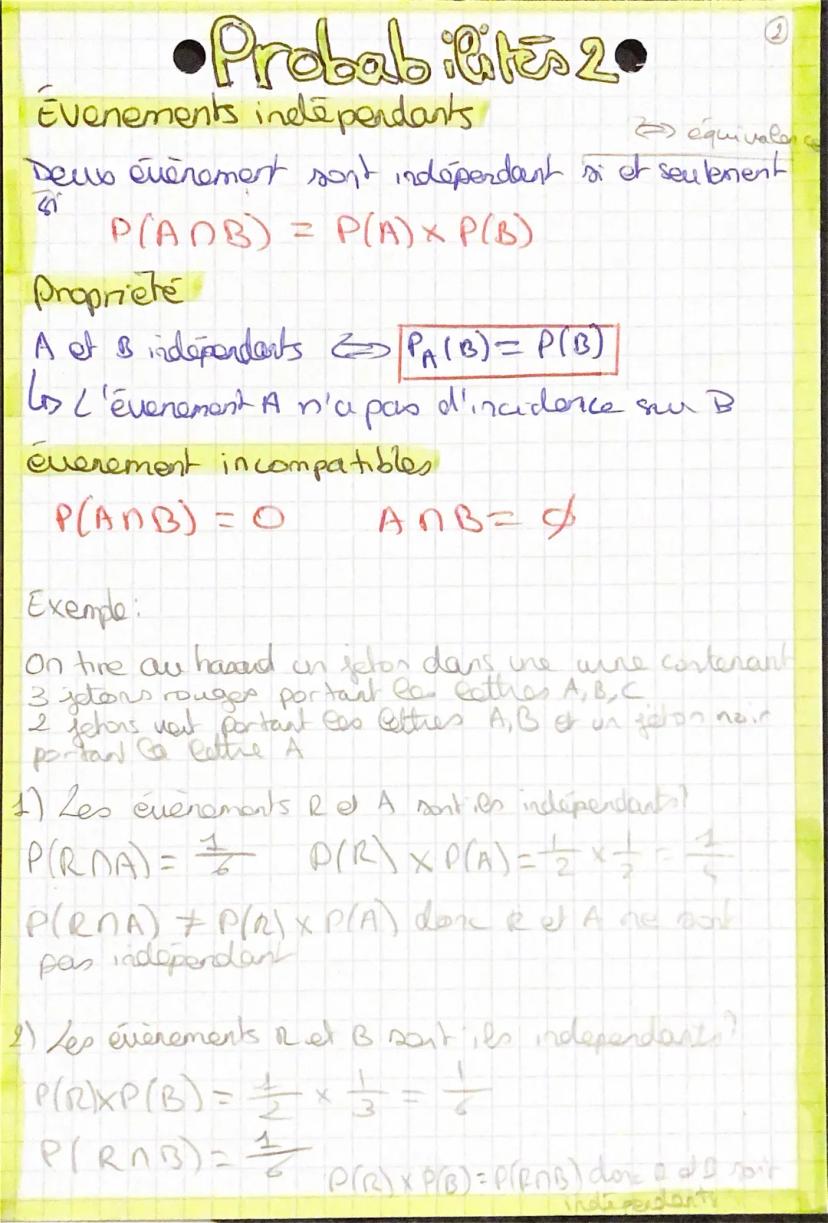 2
• Probabilités 2 •
Évenements indépendants
⇔ équivalence
Deux évènement sont indépendant si et seulement
si
P(A∩B) = P(A) × P(B)
Propriété
A et B indépendants ⇔ P_A(B) = P(B)
↳ L'évenement A n'a pas d'incidence sur B
évenement incompatibles
P(A∩B) = 0 A∩B = ∅
Exemple:
On tire au hasard un jeton dans une urne contenant
3 jetons rouges portant les lettres A, B, C
2 jetons vert portant les lettres A, B et un jeton noir
portant la lettre A
1) Les évènements R et A sont ils indépendants?
P(R∩A) = 1/6 P(R) × P(A) = 1/2 × 1/2 = 1/4
P(R∩A) ≠ P(R) × P(A) donc R et A ne sont
pas indépendant
2) Les évènements R et B sont ils indépendants?
P(R)×P(B) = 1/2 × 1/3 = 1/6
P(R∩B) = 1/6
P(R) × P(B) = P(R∩B) donc R et B sont
indépendants